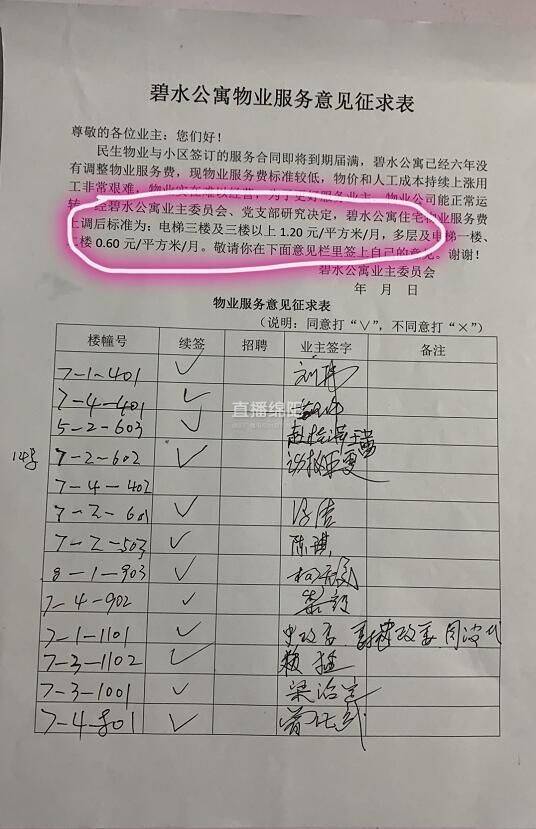 碧水公寓物业服务意见征求表
尊敬的各位业主：您们好！
民生物业与小区签订的服务合同即将到期届满，碧水公寓已经六年没
有调整物业服务费，现物业服务费标准较低，物价和人工成本持续上涨用
工非常艰难，物业实在难以经营，为了更好服务业主，物业公司能正常运
转，经碧水公寓业主委员会、党支部研究决定，碧水公寓住宅物业服务费
上调后标准为：电梯三楼及三楼以上 1.20 元/平方米/月，多层及电梯一楼、
二楼 0.60 元/平方米/月。敬请你在下面意见栏里签上自己的意见。谢谢！
碧水公寓业主委员会
年 月 日
物业服务意见征求表
（说明：同意打“∨”，不同意打“×”）
楼幢号 续签 招聘 业主签字 备注
7-1-401 ✓
7-4-401 ✓
直播绵阳
5-2-603 ✓
7-2-602 ✓
7-4-402
7-2-601 ✓
7-2-503 ✓ 陈琪
8-1-903 ✓
7-4-902 ✓
7-1-1101 ✓
7-3-1102 ✓
7-3-1001 ✓
7-4-801 ✓